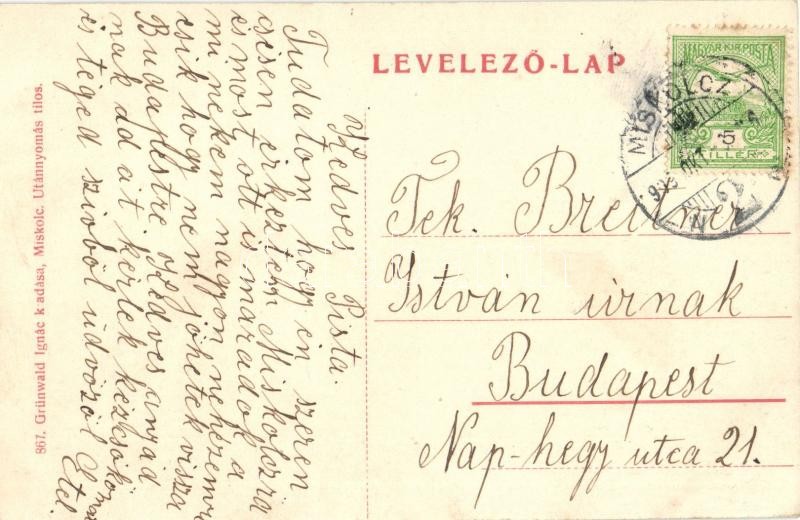 LEVELEZŐ-LAP
MAGYAR KIR. POSTA
5
FILLÉR
MISKOLCZ
Tek. Breitner
István úrnak
Budapest
Nap-hegy utca 21.
Kedves Pista.
Tudatom hogy én szeren
csésen érkeztem Miskolczra
és most ott is maradok a
mi nekem nagyon nehezemre
esik hogy nem jöhetek vissza
Budapestre Kedves anyád
nak ád át kérlek kézcsókom
és téged szívből üdvözöl
Etel.
867. Grünwald Ignác kiadása, Miskolc. Utánnyomás tilos.